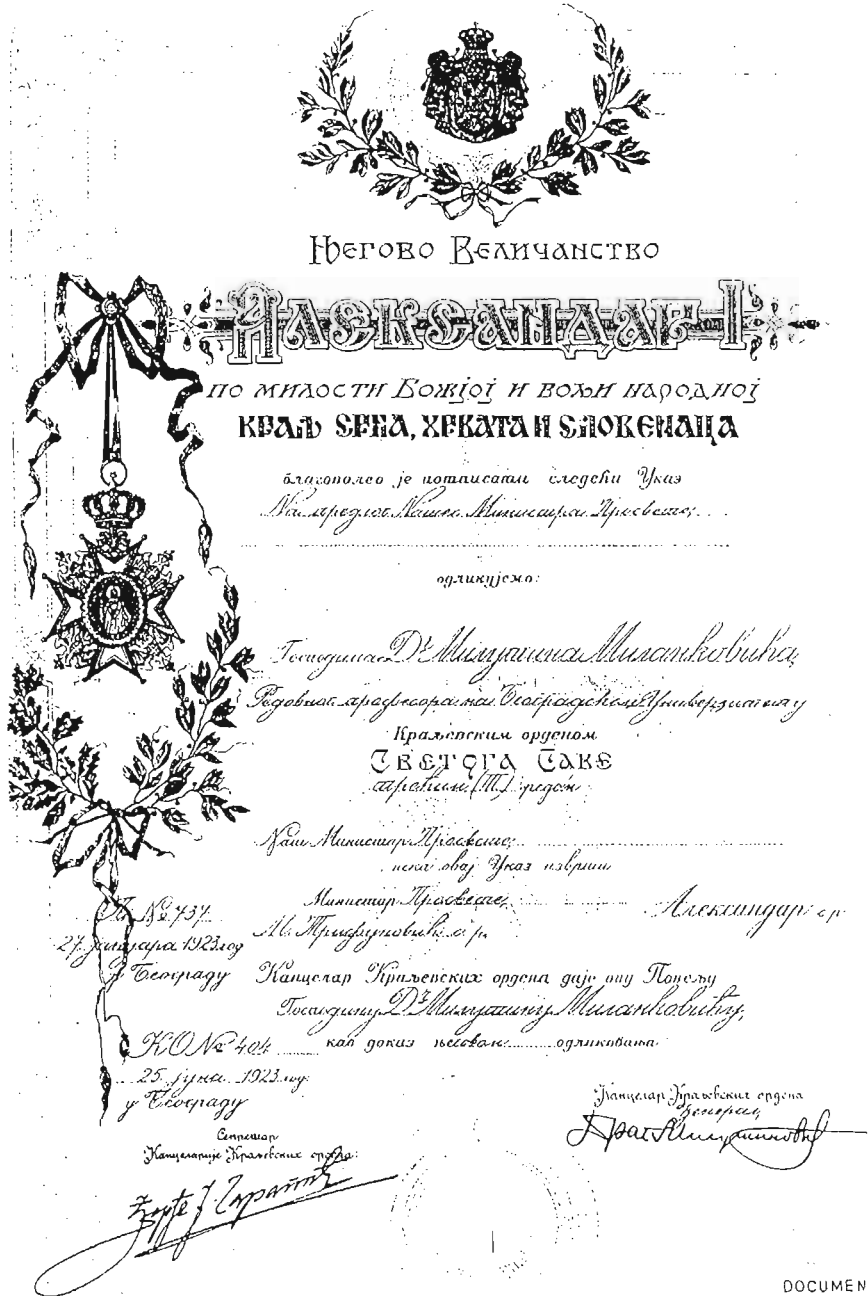 Његово Величанство
Александар I
по милости Божјој и вољи народној
Краљ Срба, Хрвата и Словенаца
благоволео је потписати следећи Указ
На предлог Нашег Министра Просвете,
одликујемо:
Господина Др Милутина Миланковића,
Редовног професора на Београдском Универзитету
Краљевским орденом
Светога Саве
трећим (III) редом
Наш Министар Просвете,
нека овај Указ изврши
П. № 737
27. јануара 1923. год
у Београду
Министар Просвете,
М. Трифуновић с.р.
Александар с.р.
Канцелар Краљевских ордена даје ову Повељу
Господину Др Милутину Миланковићу,
КО № 404
као доказ његовог одликовања
25. јуна 1923. год.
у Београду
Секретар
Канцеларије Краљевских ордена:
Канцелар Краљевских ордена
Ђенерал,
DOCUMEN